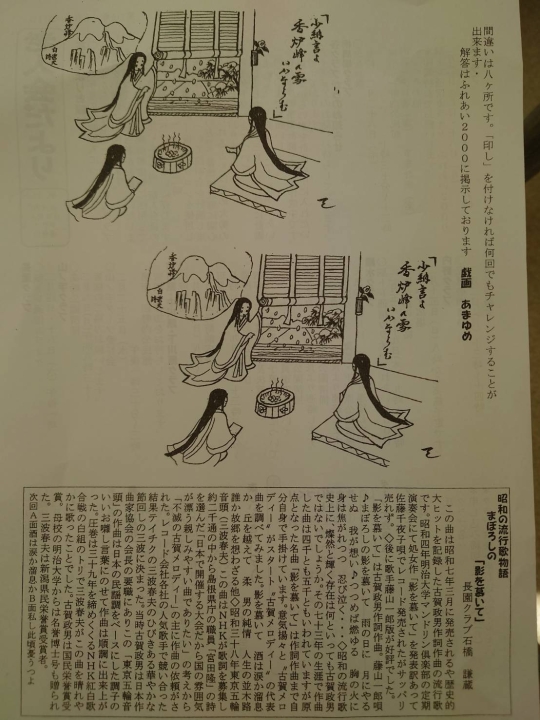 間違いは八ヶ所です。「印し」を付けなければ何回でもチャレンジすることが
出来ます・
解答はふれあい2000に掲示しております　戯画　あまゆめ
香炉峰
白楽天
詩
「少納言よ
香炉峰の雪
いかならむ」
「少納言よ
香炉峰の雪
いかならむ」
香炉峰
白楽天
詩
昭和の流行歌物語
まぼろしの「影を慕いて」
長園クラブ　石橋　謙蔵
この曲は昭和七年三月に発売されるや歴史的
大ヒットを記録した古賀政男作詞作曲の流行歌
です。昭和四年明治大学マンドリン倶楽部の定期
演奏会にて処女作「影を慕いて」を発表訳あって
佐藤千夜子唄でレコード発売されたがサッパリ
売れず。◇後に歌手藤山一郎版が好評でした。
「影を慕いて」は古賀政男作詞作曲。藤山一郎唄
♪まぼろしの影を慕いて　雨の日に　月にやる
せぬ　我が想い♪つつめば燃ゆる　胸の火に
身は焦がれつつ　忍び泣く・・・◇昭和の流行歌
史上に、燦然と輝く存在は何といっても古賀政男
ではないでしょうか。その七十三年の生涯で作曲
した曲は四千とも五千ともいわれていますが原
点となった名曲「影を慕いて」は作詞作曲まで自
分自身で手掛けています
ディー」がスタート。"古賀メロディー"の代表
曲を調べてみました。影を慕いて　酒は涙か溜息
か　丘を越えて　柔　男の純情　人生の並木路
誰か故郷を想わざる他◇昭和三十八年東京五輪
音頭・三波春夫◇この曲はNHKが歌詞を募集し
約二千通の中から島根県庁の職員「宮田隆」作
を選んだ「日本で開催する大会だから国の雰囲気
が漂う親しみやすい曲でありたい」の考えから
「不滅の古賀メロディー」の主に作曲の依頼がさ
れた。レコード会社各社の人気歌手で競い合った
結果テイチクの三波春夫ののびきある華やかな
節回しの三波盤がヒット。◇当時古賀政男は日本作
曲家協会の会長の要職にもあった。この「東京五輪音
頭」の作曲は日本の民謡調をベースにした調子の
いいお囃し言葉にのせて作曲は順調に出来上が
った。圧巻は三十九年を締めくくるNHK紅白歌
合戦の白組のトリで三波春夫がこの曲を晴れや
かに歌ったことでした。古賀政男は国民栄誉賞受
賞、母校の明治大学からは名誉博士号も贈られ
た。三波春夫は新潟県民栄誉賞受賞者。
次回A面酒は涙か溜息かB面私此頃憂うつよ